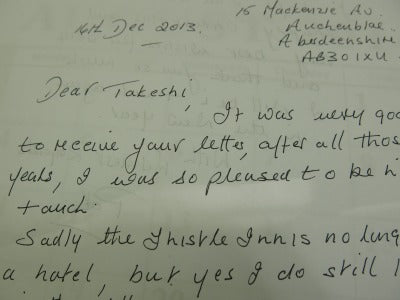 15 Mackenzie Av.
14th Dec 2013.
Auchenblae.
Aberdeenshire
AB30 1XU
Dear Takeshi,
It was very goo
to receive your letter, after all thos
years, I was so pleased to be
touch.
Sadly the Thistle Inn is no
a hotel, but yes I do still